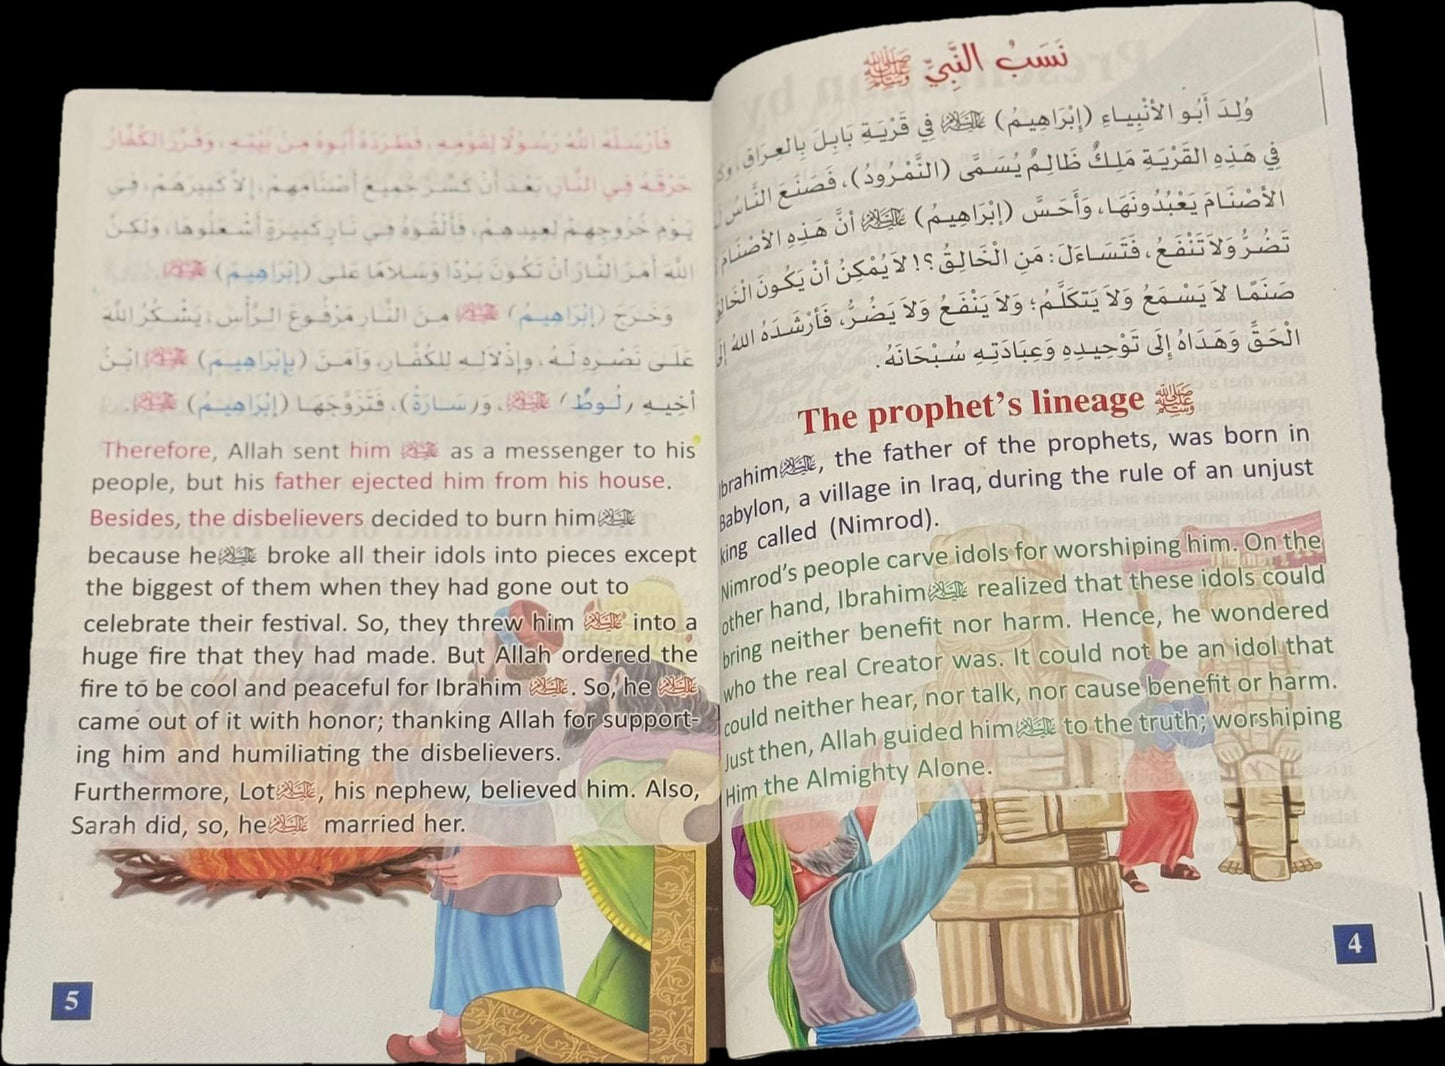 نَسَبُ النَّبِيِّ ﷺ
وُلِدَ أَبُو الأَنْبِيَاءِ (إِبْرَاهِيمُ) عَلَيْهِ السَّلَامُ فِي قَرْيَةِ بَابِلَ بِالعِرَاقِ،
فِي هَذِهِ القَرْيَةِ مَلِكٌ ظَالِمٌ يُسَمَّى (النَّمْرُودُ)، فَصَنَعَ النَّاسُ
الأَصْنَامَ يَعْبُدُونَهَا، وَأَحَسَّ (إِبْرَاهِيمُ) عَلَيْهِ السَّلَامُ أَنَّ هَذِهِ الأَصْنَامَ
تَضُرُّ وَلاَ تَنْفَعُ، فَتَسَاءَلَ: مَنِ الْخَالِقُ؟! لاَ يُمْكِنُ أَنْ يَكُونَ الْخَالِقُ
صَنَمًا لاَ يَسْمَعُ وَلاَ يَتَكَلَّمُ؛ وَلاَ يَنْفَعُ وَلاَ يَضُرُّ، فَأَرْشَدَهُ اللهُ إِلَى
الْحَقِّ وَهَدَاهُ إِلَى تَوْحِيدِهِ وَعِبَادَتِهِ سُبْحَانَهُ.
The prophet's lineage ﷺ
Ibrahim عَلَيْهِ السَّلَامُ, the father of the prophets, was born in
Babylon, a village in Iraq, during the rule of an unjust
king called (Nimrod).
Nimrod's people carve idols for worshiping him. On the
other hand, Ibrahim عَلَيْهِ السَّلَامُ realized that these idols could
bring neither benefit nor harm. Hence, he wondered
who the real Creator was. It could not be an idol that
could neither hear, nor talk, nor cause benefit or harm.
Just then, Allah guided him عَلَيْهِ السَّلَامُ to the truth; worshiping
Him the Almighty Alone.
4
فَأَرْسَلَهُ اللهُ رَسُولًا لِقَوْمِهِ، فَطَرَدَهُ أَبُوهُ مِنْ بَيْتِهِ، وَقَرَّرَ الكُفَّارُ
حَرْقَهُ فِي النَّارِ، بَعْدَ أَنْ كَسَّرَ جَمِيعَ أَصْنَامِهِمْ، إِلاَّ كَبِيرَهُمْ، فِي
يَوْمِ خُرُوجِهِمْ لِعِيدِهِمْ، فَأَلْقَوْهُ فِي نَارٍ كَبِيرَةٍ أَشْعَلُوهَا، وَلَكِنَّ
اللهَ أَمَرَ النَّارَ أَنْ تَكُونَ بَرْدًا وَسَلَامًا عَلَى (إِبْرَاهِيمَ) عَلَيْهِ السَّلَامُ.
وَخَرَجَ (إِبْرَاهِيمُ) عَلَيْهِ السَّلَامُ مِنَ النَّارِ مَرْفُوعَ الرَّأْسِ، يَشْكُرُ اللهَ
عَلَى نَصْرِهِ لَهُ، وَإِذْلَالِهِ لِلكُفَّارِ، وَآمَنَ (بِإِبْرَاهِيمَ) عَلَيْهِ السَّلَامُ ابْنُ
أَخِيهِ (لُوطٌ) عَلَيْهِ السَّلَامُ، وَ(سَارَةُ)، فَتَزَوَّجَهَا (إِبْرَاهِيمُ) عَلَيْهِ السَّلَامُ.
Therefore, Allah sent him عَلَيْهِ السَّلَامُ as a messenger to his
people, but his father ejected him from his house.
Besides, the disbelievers decided to burn him عَلَيْهِ السَّلَامُ
because he عَلَيْهِ السَّلَامُ broke all their idols into pieces except
the biggest of them when they had gone out to
celebrate their festival. So, they threw him عَلَيْهِ السَّلَامُ into a
huge fire that they had made. But Allah ordered the
fire to be cool and peaceful for Ibrahim عَلَيْهِ السَّلَامُ. So, he عَلَيْهِ السَّلَامُ
came out of it with honor; thanking Allah for support-
ing him and humiliating the disbelievers.
Furthermore, Lot عَلَيْهِ السَّلَامُ, his nephew, believed him. Also,
Sarah did, so, he عَلَيْهِ السَّلَامُ married her.
5